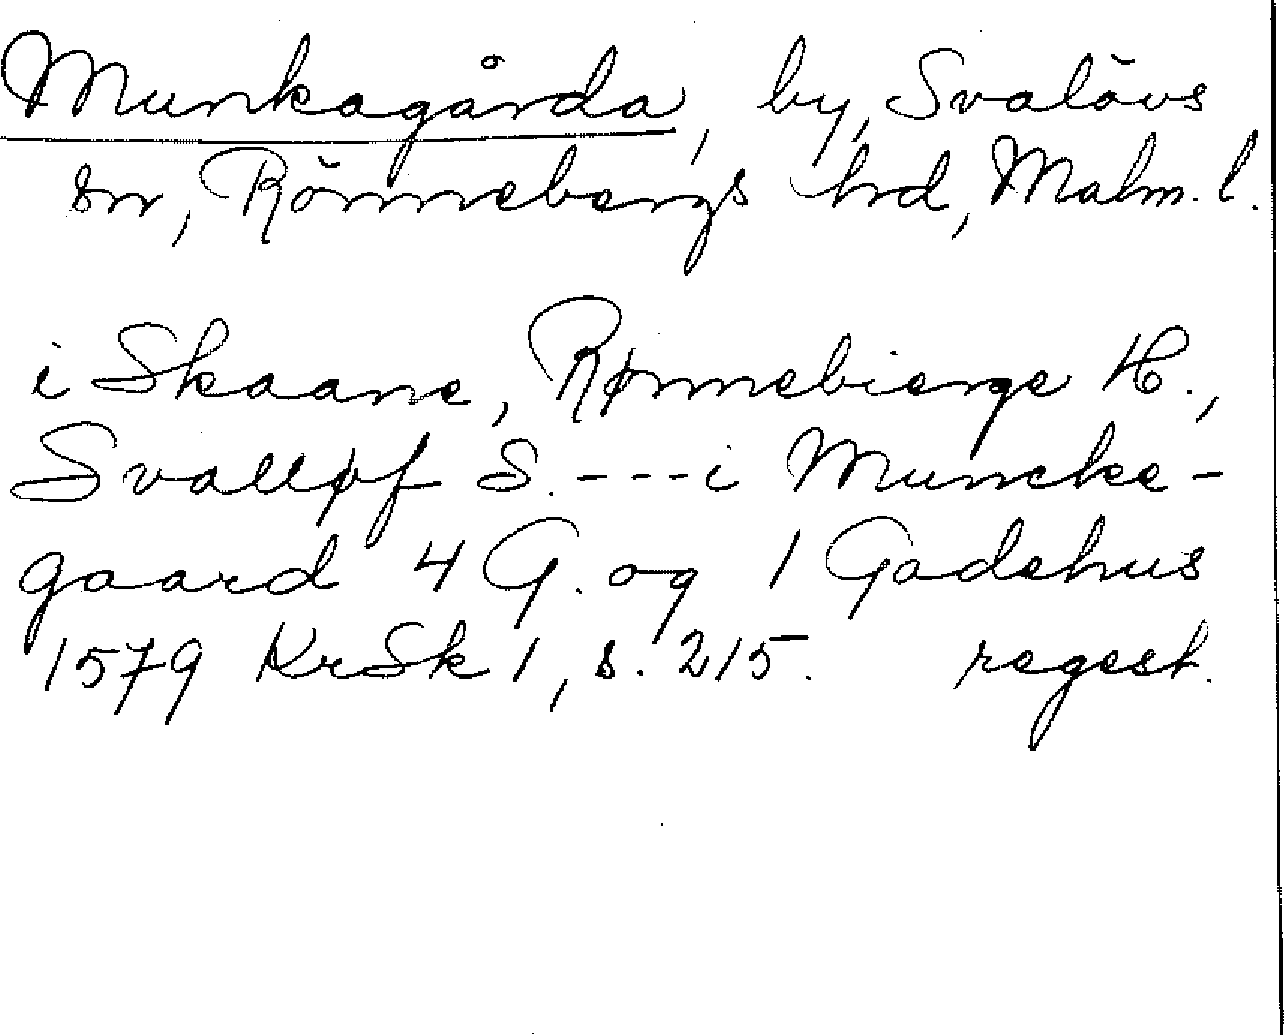 Munkagårda, by, Svalövs
sn, Rönnebergs hrd, Malm. l.
i Skaane, Rønnebierge H.,
Svalløf S. - - - i Muncke-
gaard 4 G. og 1 Gadehus
1579 KrSk 1, s. 215. regest.